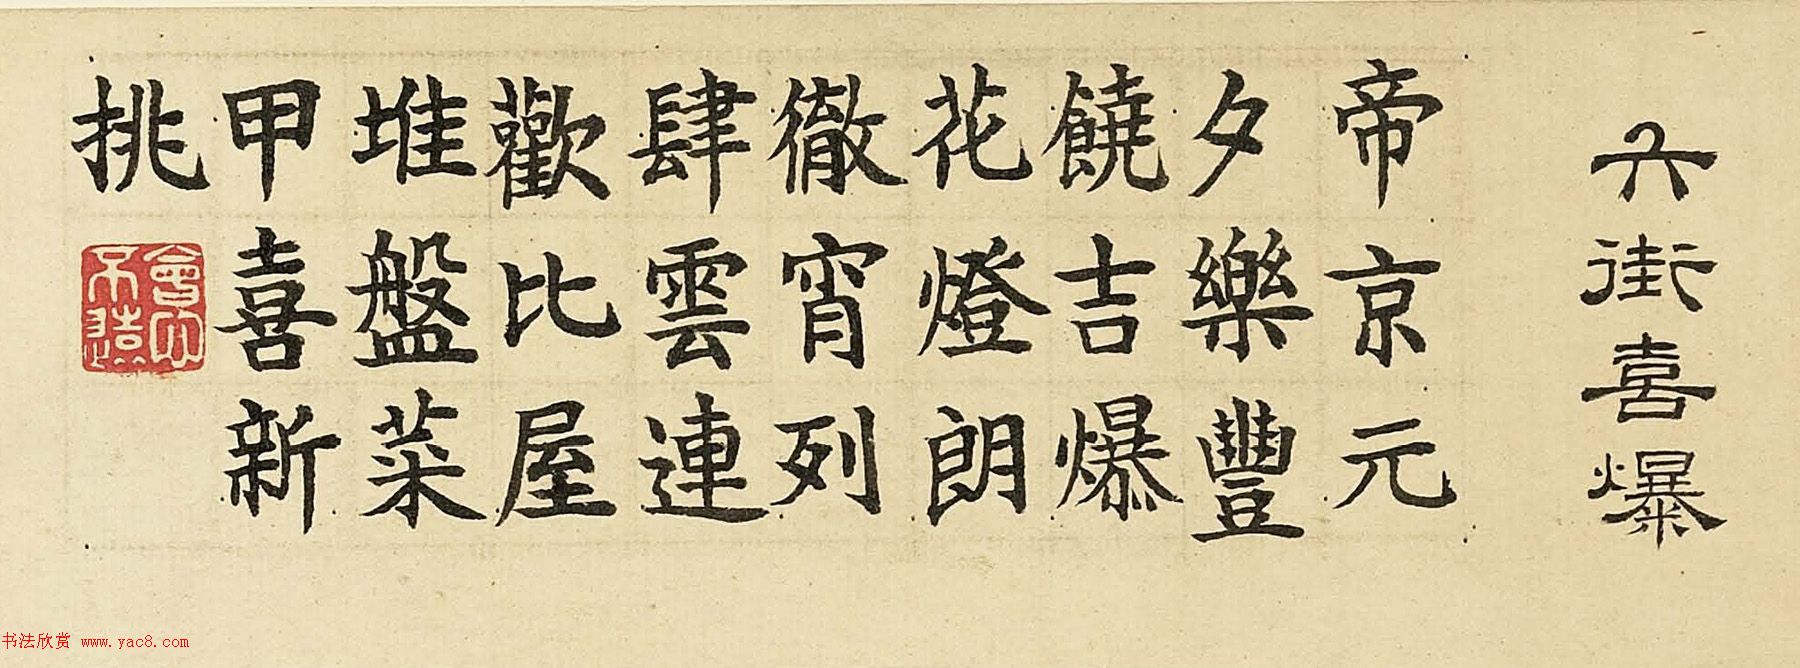 六街喜爆
帝京元
夕樂豐
饒吉爆
花燈朗
徹宵列
肆雲連
歡比屋
堆盤菜
甲喜新
挑
會心
不遠
书法欣赏 www.yac8.com